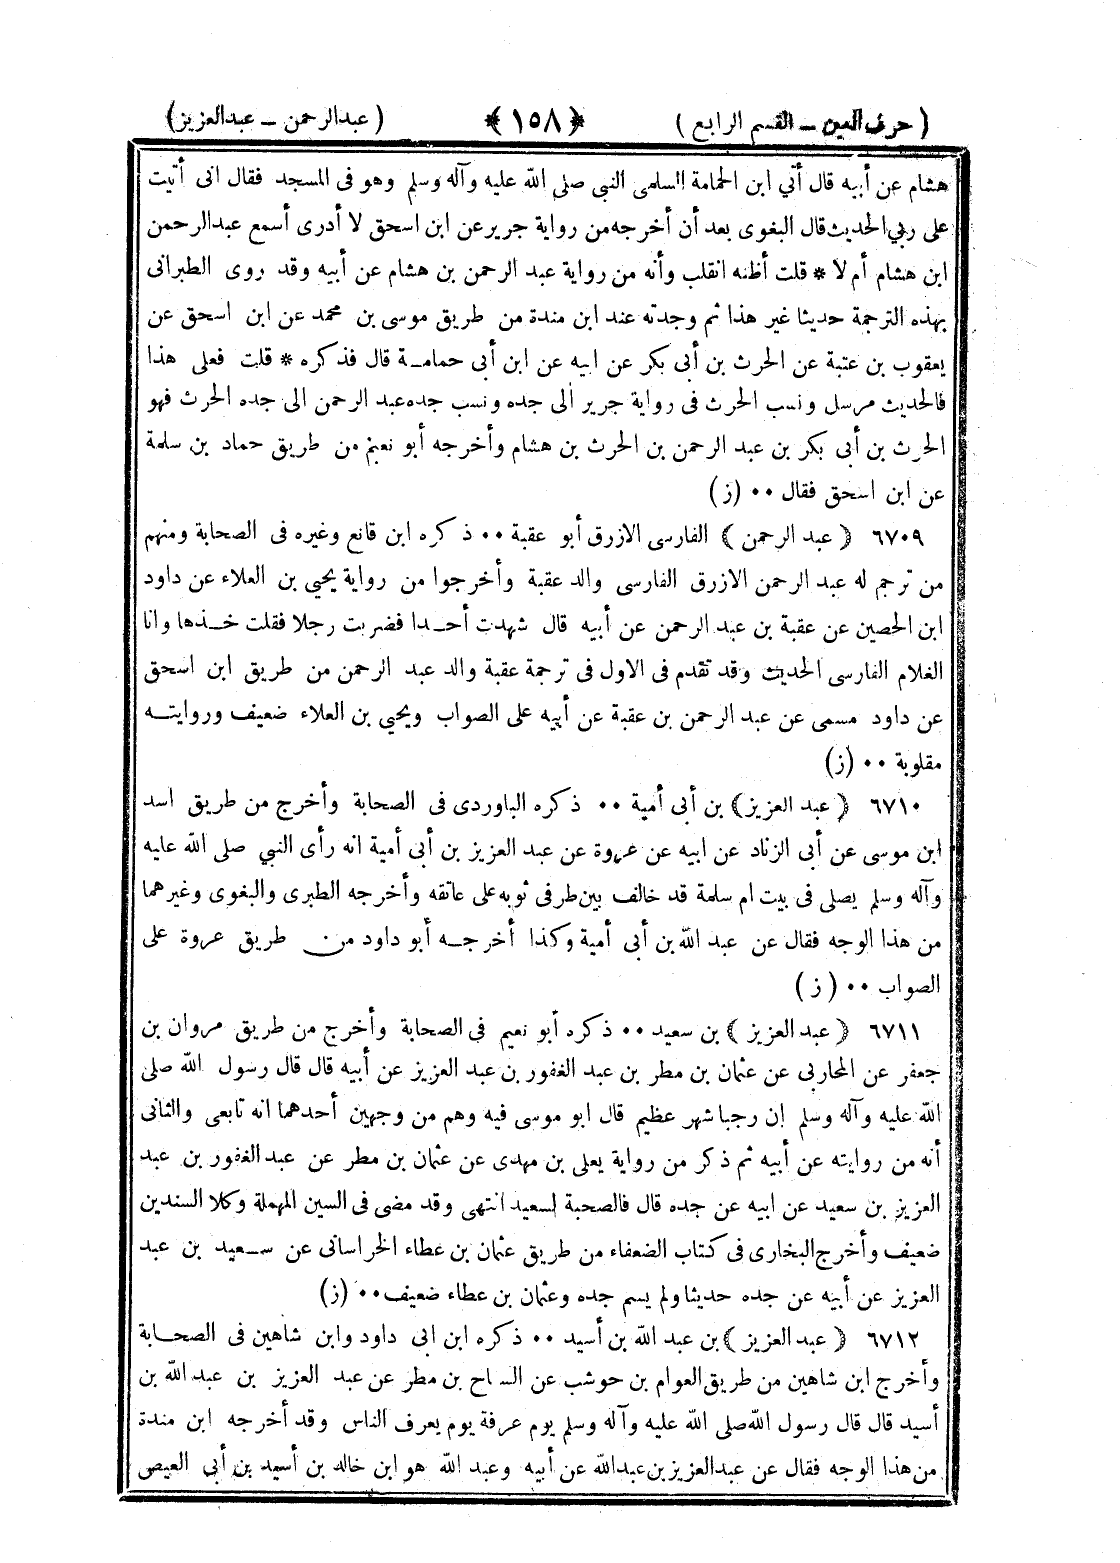 ( حرف العين ــ القسم الرابع )
﴿ ١٥٨ ﴾
( عبد الرحمن ــ عبد العزيز )
هشام عن أبيه قال أتي ابن الحمامة السلمى النبي صلى الله عليه وآله وسلم وهو فى المسجد فقال انى أثنيت
على ربي الحديث قال البغوى بعد أن أخرجه من رواية جرير عن ابن اسحق لا أدرى أسمع عبد الرحمن
ابن هشام أم لا * قلت أظنه انقلب وأنه من رواية عبد الرحمن بن هشام عن أبيه وقد روى الطبرانى
بهذه الترجمة حديثا غير هذا ثم وجدته عند ابن مندة من طريق موسى بن محمد عن ابن اسحق عن
يعقوب بن عتبة عن الحرث بن أبى بكر عن ابيه عن ابن أبى حمامـة قال فذكره * قلت فعلى هذا
فالحديث مرسل ونسب الحرث فى رواية جرير الى جده ونسب جده عبد الرحمن الى جده الحرث فهو
الحرث بن أبى بكر بن عبد الرحمن بن الحرث بن هشام وأخرجه أبو نعيم من طريق حماد بن سلمة
عن ابن اسحق فقال ٠٠ (ز)
٦٧٠٩ ﴿ عبد الرحمن ﴾ الفارسى الازرق أبو عقبة ٠٠ ذكره ابن قانع وغيره فى الصحابة ومنهم
من ترجم له عبد الرحمن الازرق الفارسى والد عقبة وأخرجوا من رواية يحيي بن العلاء عن داود
ابن الحصين عن عقبة بن عبد الرحمن عن أبيه قال شهدت أحـدا فضربت رجلا فقلت خـذها وانا
الغلام الفارسى الحديث وقد تقدم فى الاول فى ترجمة عقبة والد عبد الرحمن من طريق ابن اسحق
عن داود مسمى عن عبد الرحمن بن عقبة عن أبيه على الصواب ويحيي بن العلاء ضعيف وروايتـه
مقلوبة ٠٠ (ز)
٦٧١٠ ﴿ عبد العزيز ﴾ بن أبى أمية ٠٠ ذكره الباوردى فى الصحابة وأخرج من طريق اسد
ابن موسى عن أبى الزناد عن ابيه عن عروة عن عبد العزيز بن أبى أمية انه رأى النبي صلى الله عليه
وآله وسلم يصلى فى بيت ام سلمة قد خالف بين طرفى ثوبه على عاتقه وأخرجه الطبرى والبغوى وغيرهما
من هذا الوجه فقال عن عبد الله بن أبى أمية وكذا أخرجـه أبو داود من طريق عروة على
الصواب ٠٠ ( ز )
٦٧١١ ﴿ عبد العزيز ﴾ بن سعيد ٠٠ ذكره أبو نعيم فى الصحابة وأخرج من طريق مروان بن
جعفر عن المحاربى عن عثمان بن مطر بن عبد الغفور بن عبد العزيز عن أبيه قال قال رسول الله صلى
الله عليه وآله وسلم إن رجبا شهر عظيم قال ابو موسى فيه وهم من وجهين أحدهما انه تابعى والثانى
أنه من روايته عن أبيه ثم ذكر من رواية يعلى بن مهدى عن عثمان بن مطر عن عبد الغفور بن عبد
العزيز بن سعيد عن ابيه عن جده قال فالصحبة لسعيد انتهى وقد مضى فى السين المهملة وكلا السندين
ضعيف وأخرج البخارى فى كتاب الضعفاء من طريق عثمان بن عطاء الخراسانى عن سـعيد بن عبد
العزيز عن أبيه عن جده حديثا ولم يسم جده وعثمان بن عطاء ضعيف ٠٠ (ز)
٦٧١٢ ﴿ عبد العزيز ﴾ بن عبد الله بن أسيد ٠٠ ذكره ابن ابى داود وابن شاهين فى الصحـابة
وأخرج ابن شاهين من طريق العوام بن حوشب عن السفاح بن مطر عن عبد العزيز بن عبد الله بن
أسيد قال قال رسول الله صلى الله عليه وآله وسلم يوم عرفة يوم يعرف الناس وقد أخرجه ابن مندة
من هذا الوجه فقال عن عبد العزيز بن عبد الله عن أبيه وعبد الله هو ابن خالد بن أسيد بن أبى العيص